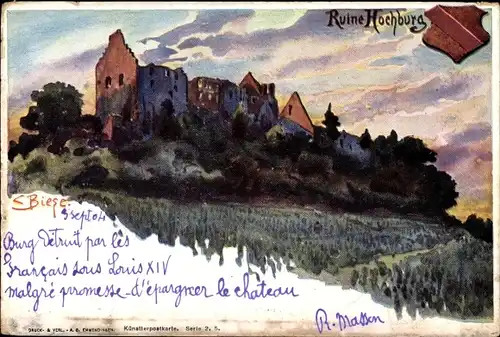 Ruine Hochburg
E Biese.
3 sept 04
Burg Détruit par les
Français sous Louis XIV
malgré promesse d'épargner le chateau
R. Masson
DRUCK- & VERL.- A. D.
Künstlerpostkarte. Serie 2, 5.